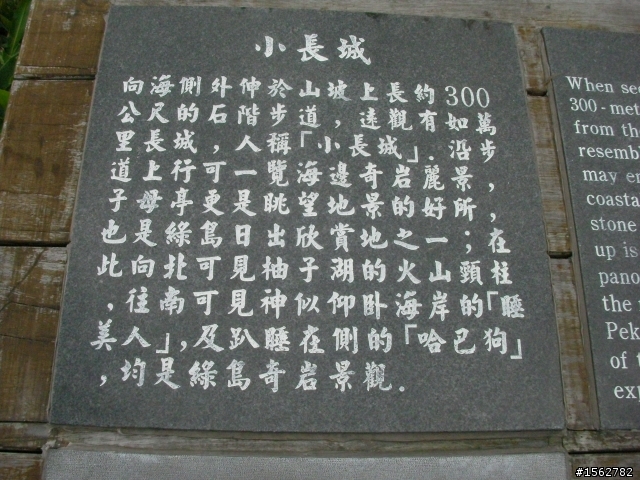 小長城
向海側外伸於山坡上長約300
公尺的石階步道，遠觀有如萬
里長城，人稱「小長城」.沿步
道上行可一覽海邊奇岩麗景，
子母亭更是眺望地景的好所，
也是綠島日出欣賞地之一；在
此向北可見柚子湖的火山頸柱
，往南可見神似仰臥海岸的「睡
美人」，及趴睡在側的「哈巴狗」
，均是綠島奇岩景觀.
When see
300-met
from th
resembl
may en
coasta
stone
up is
pano
the
Pek
of t
exp
#1562782